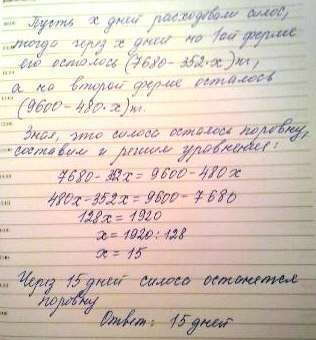 Пусть х дней расходовали силос,
тогда через х дней на 1ой ферме
его осталось (7680-352·х)т,
а на второй ферме осталось
(9600-480·х)т.
Зная, что силоса осталось поровну,
составим и решим уравнение:
7680-352х=9600-480х
480х-352х=9600-7680
128х=1920
х=1920:128
х=15
Через 15 дней силоса останется
поровну
Ответ: 15 дней